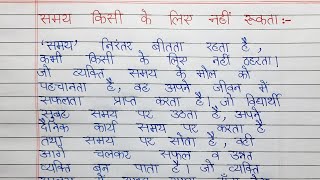 समय किसी के लिए नहीं रूकता:-
'समय' निरंतर बीतता रहता है,
कभी किसी के लिए नहीं ठहरता।
जो व्यक्ति समय के मोल को
पहचानता है, वह अपने जीवन में
सफलता प्राप्त करता है। जो विद्यार्थी
सुबह समय पर उठता है, अपने
दैनिक कार्य समय पर करता है
तथा समय पर सोता है, वही
आगे चलकर सफल व उन्नत
व्यक्ति बन पाता है। जो व्यक्ति